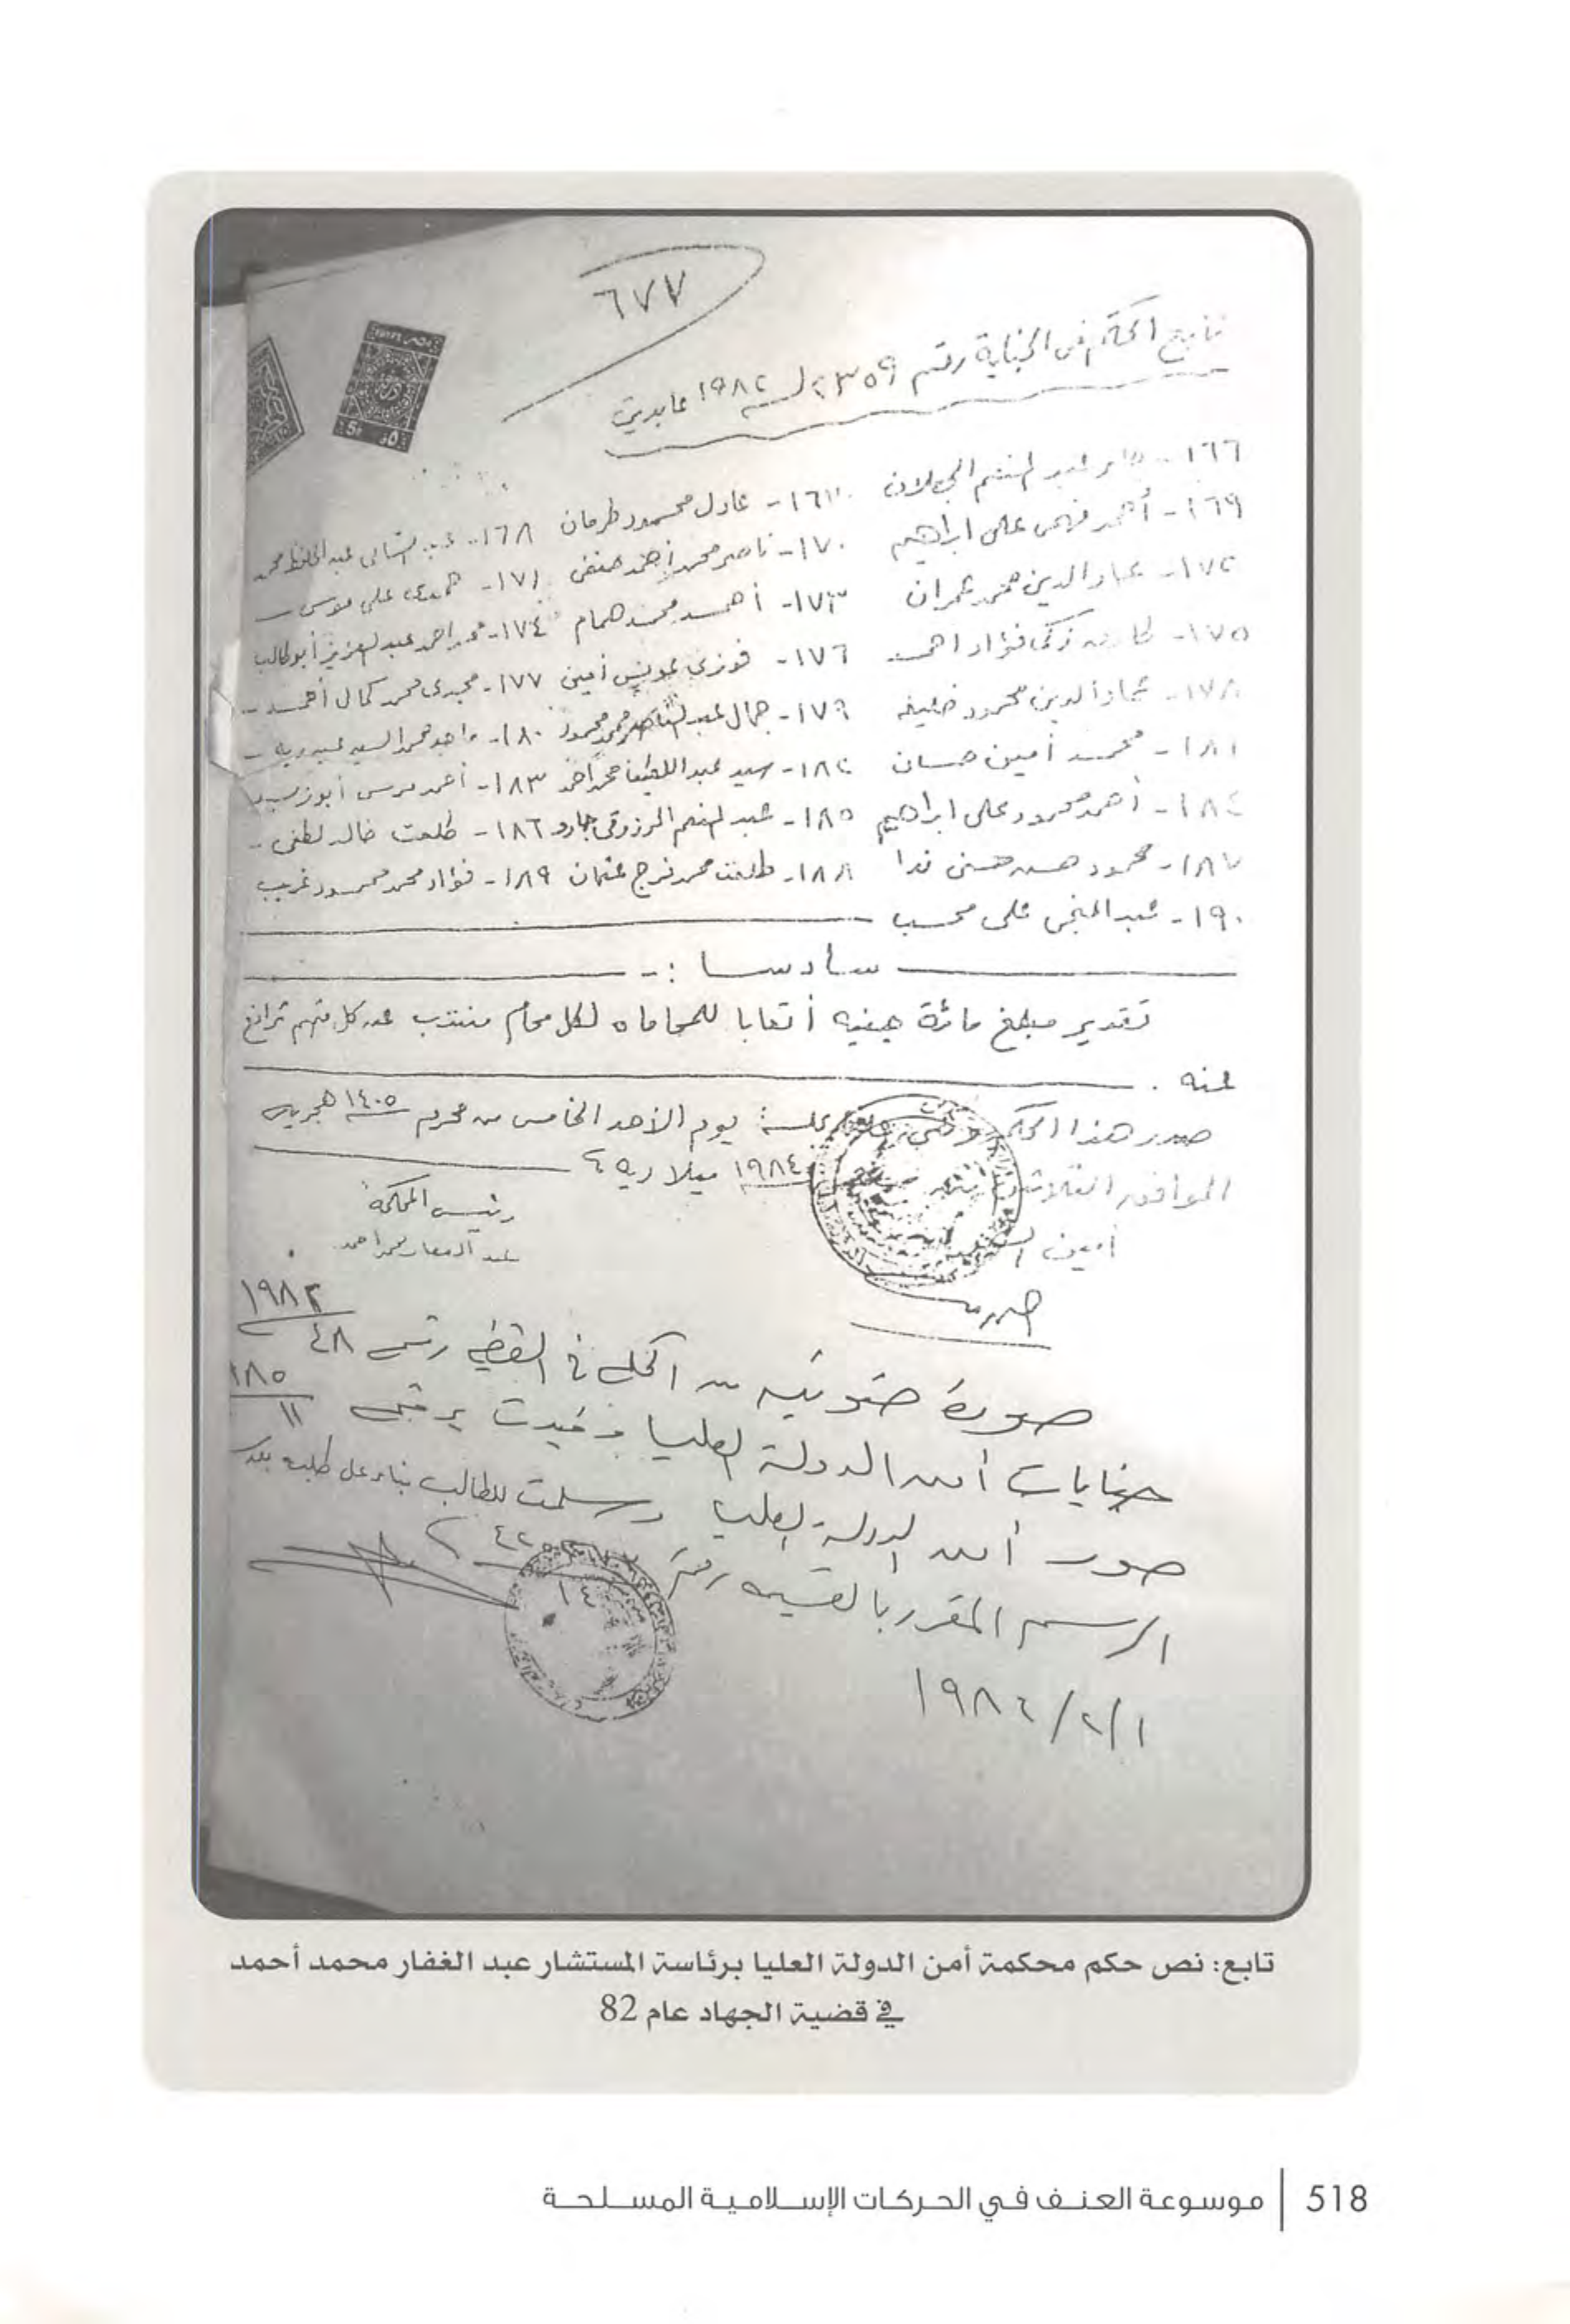 ٦٧٧
تابع الحكم فى الجناية رقم ٢٣٥٩ لسنة ١٩٨٢ عابدين
١٦٦- عبد المنعم ١٦٧- عادل محمود طرمان ١٦٨- عبد الحافظ محمد
١٦٩- أحمد فهمى على ابراهيم ١٧٠- ناصر محمد أحمد حنفى ١٧١- حمدى على موسى
١٧٢- عماد الدين محمد عمران ١٧٣- أحمد محمد همام ١٧٤- محمد احمد عبد العزيز أبو طالب
١٧٥- طارق زكى فؤاد احمد ١٧٦- فوزى عويس أمين ١٧٧- مجدى محمد كمال أحمد
١٧٨- عماد الدين محمود خليفه ١٧٩- جمال عبد الناصر محمد محمود ١٨٠- ماجد محمد السيد عبد ربه
١٨١- محمد أمين حسان ١٨٢- سيد عبد اللطيف محمد أحمد ١٨٣- أحمد مرسى أبو زيد
١٨٤- أحمد محمود على ابراهيم ١٨٥- عبد المنعم الرزوقى ١٨٦- طلعت خالد لطفى
١٨٧- محمود حسن حسنى ندا ١٨٨- طلعت محمد فرج عثمان ١٨٩- فؤاد محمد محمود غريب
١٩٠- عبد المنجى على محسب
سادسا :-
تقدير مبلغ مائة جنيه أتعابا للمحاماه لكل محام منتدب عن كل متهم ترافع
عنه .
صدر هذا الحكم علنا بجلسة يوم الأحد الخامس من محرم ١٤٠٥ هجريه
الموافق الثلاثين ١٩٨٤ ميلاديه
أمين السر رئيس المحكمة
عبد الغفار محمد احمد
صورة ضوئية من الحكم فى القضية رقم ٤٨ / ١٩٨٢
جنايات أمن الدولة العليا وقيدت برقم ١١ / ١٨٥
صور أمن الدولة العليا وسلمت للطالب بناء على طلبه بعد
الرسم المقرر بالقسيمه رقم
١٩٨٦/٢/١
تابع: نص حكم محكمة أمن الدولة العليا برئاسة المستشار عبد الغفار محمد أحمد
في قضية الجهاد عام 82
518 | موسوعة العنف في الحركات الإسلامية المسلحة